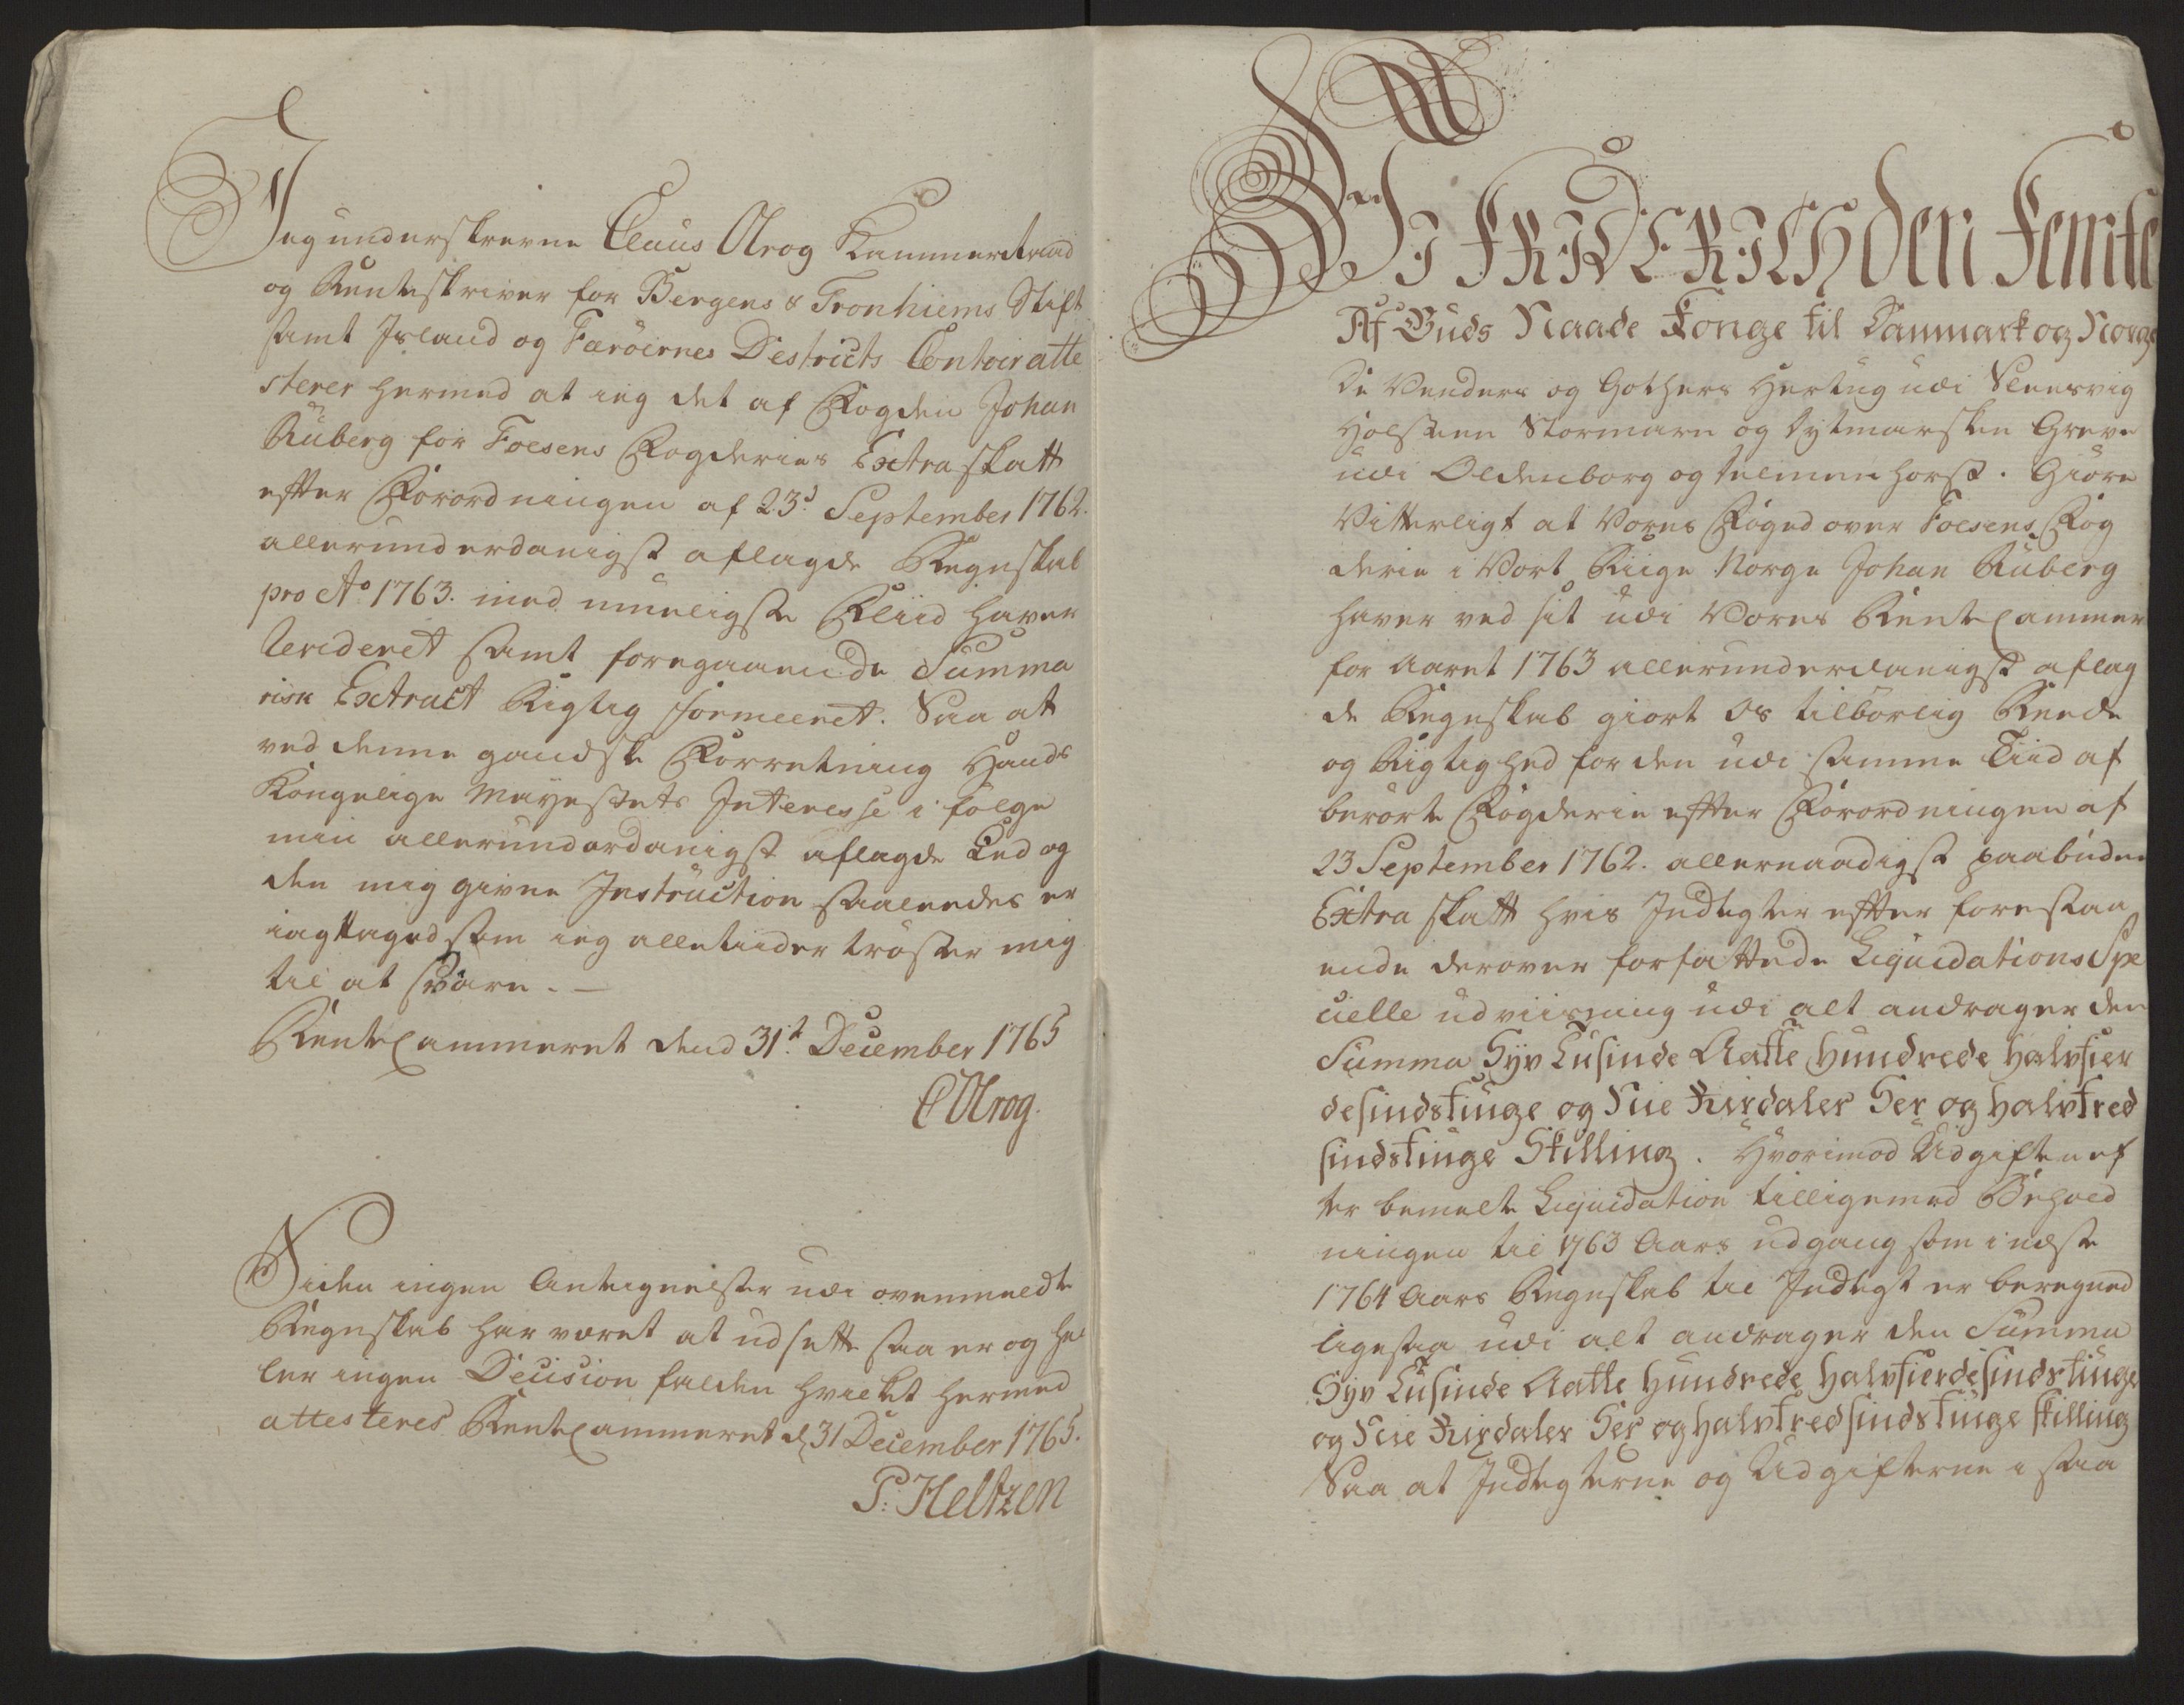 Jeg underskrevne Claus Olrog Kammerraad
og Renteskriver for Bergens & Tronhiems Stift
samt Island og Færöernes Destricts Contoir atte
sterer hermed at ieg det af Fogden Johan
Ruberg for Foesens Fogderies Extra skatt
efter Forordningen af 23d September 1762.
allerunderdanigst aflagde Regnskab
pro Ao 1763. med mueligste Fliid haver
lerideret samt foregaaende Summa
risk Extract Rigtig formeeret. Saa at
ved denne gandske Forretning Hands
Kongelige Mayestets Interesse i fölge
min allerunderdanigst aflagde Eed og
den mig givne Instruction saaledes er
iagttaged som ieg alletiider tröster mig
til at svare. —
RenteCammeret dend 31t December 1765
COlrog.
Siden ingen Antegnelser udi ovenmeldte
Regnskab har været at udsette saa er og hel
ler ingen Decision falden hvilket hermed
attesteres RenteCammeret d 31 December 1765.
P. Heltzen
Vi FRIDERICH den Femte
Af Guds Naade Konge til Danmark og Norge
De Venders og Gothers Hertug udi Slesvig
Holsteen Stormarn og Dytmersken Greve
udi Oldenborg og Delmenhorst. Giöre
Vitterligt at Vores Foged over Foesens Fog
derie i Vort Riige Norge Johan Ruberg
haver ved sit udi Vores RenteCammer
for Aaret 1763 allerunderdanigst aflag
de Regnskab giort Os tilbörlig Reede
og Rigtighed for den udi samme Tiid af
berörte Fogderie efter Forordningen af
23 September 1762. allernaadigst paabudne
Extra skatt hvis Indtegter efter forestaa
ende derover forfattede Liquidations Spe
cielle udviisning udi alt andrager den
Summa Syv Tusinde Aatte Hundrede Halvfier
desindstiuge og Nie Rixdaler Sex og halvtred
sindstiuge Skilling. Hvorimod Udgiften ef
ter bemelte Liquidation tilligemed Behold
ningen til 1763 Aars udgang som i nest
1764 Aars Regnskab til Indtegt er beregned
ligesaa udi alt andrager den Summa
Syv Tusinde Aatte Hundrede Halvfierdesindstiuge
og Nie Rixdaler Sex og halvtredsindstiuge skilling
Saa at Indtegterne og Udgifterne i saa